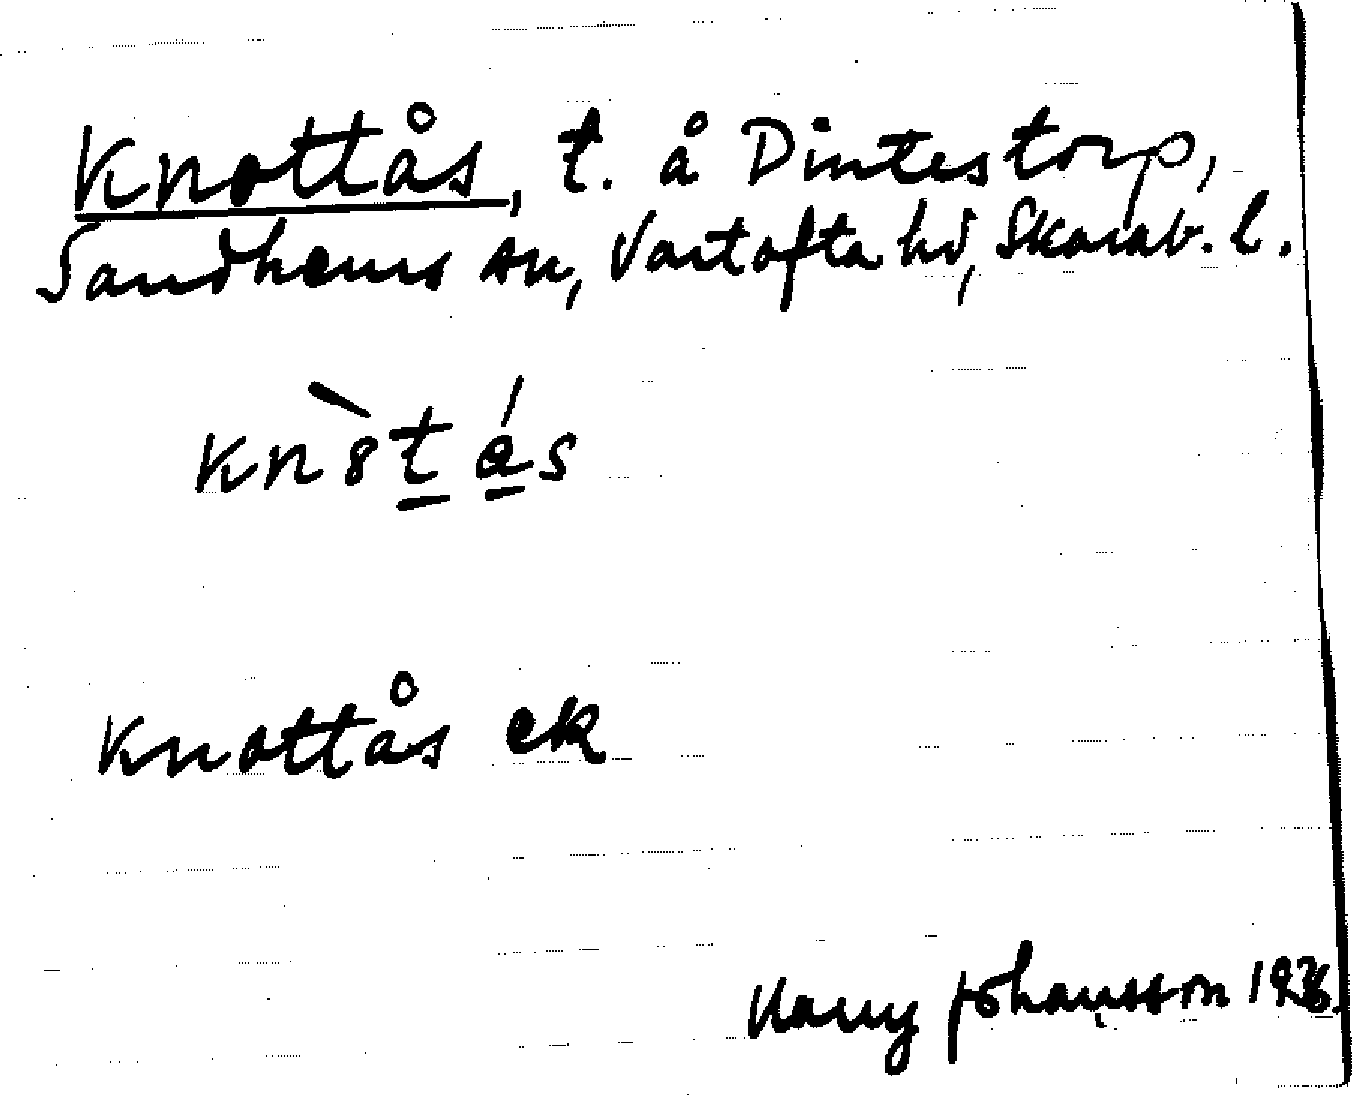 Knottås, t. å Dintestorp,
Sandhems sn, Vartofta hd, Skarab. l.
Knottås ek
Harry Johansson